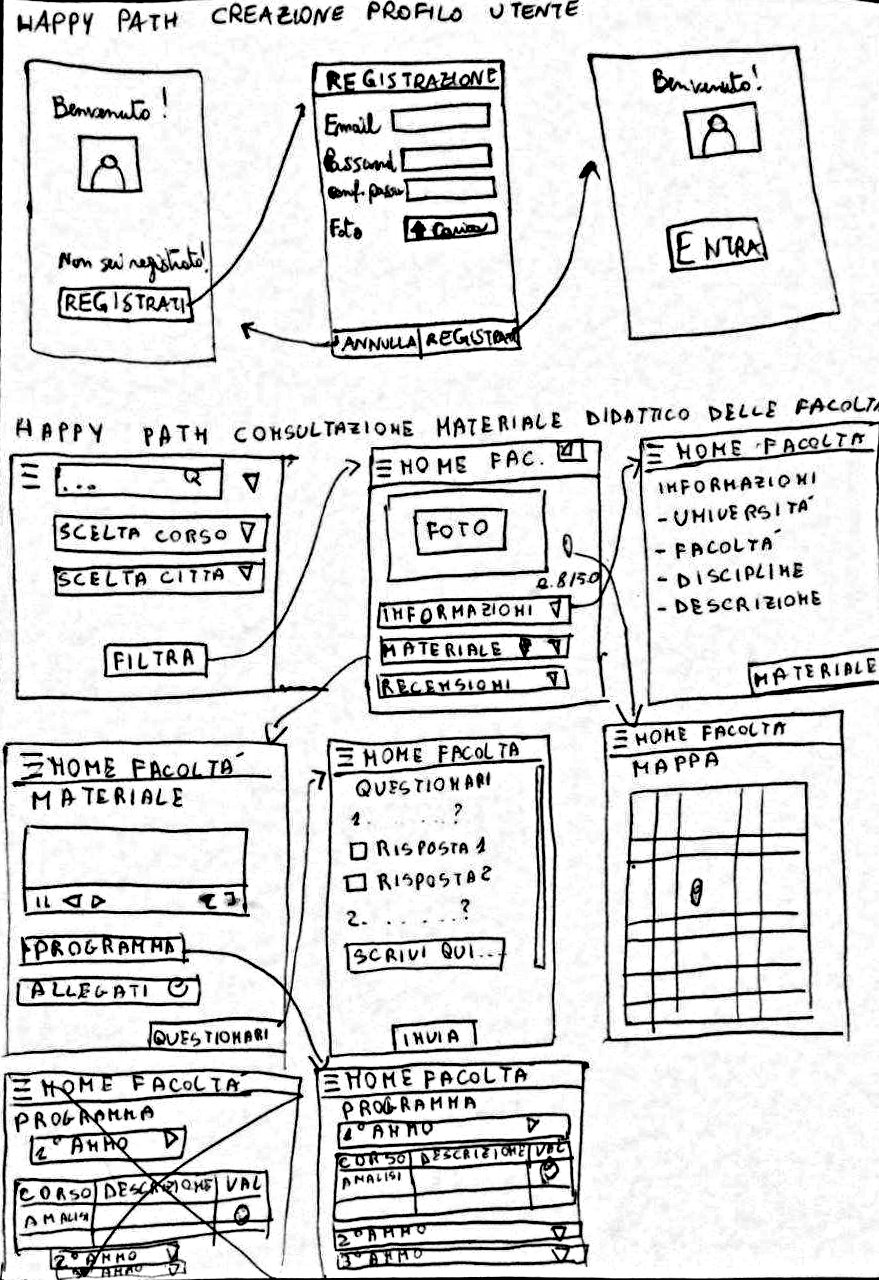 HAPPY PATH CREAZIONE PROFILO UTENTE
Benvenuto!
Non sei registrato!
REGISTRATI
REGISTRAZIONE
Email
Password
conf. passw
Foto
Carica
ANNULLA
REGISTRATI
Benvenuto!
ENTRA
HAPPY PATH CONSULTAZIONE MATERIALE DIDATTICO DELLE FACOLTA
...
SCELTA CORSO
SCELTA CITTA
FILTRA
HOME FAC.
FOTO
INFORMAZIONI
MATERIALE
RECENSIONI
HOME FACOLTA
INFORMAZIONI
- UNIVERSITA'
- FACOLTA'
- DISCIPLINE
- DESCRIZIONE
MATERIALE
HOME FACOLTA'
MATERIALE
PROGRAMMA
ALLEGATI
QUESTIONARI
HOME FACOLTA
QUESTIONARI
1. ........?
RISPOSTA 1
RISPOSTA 2
2. .......?
SCRIVI QUI...
INVIA
HOME FACOLTA
MAPPA
HOME FACOLTA'
PROGRAMMA
1° ANNO
CORSO DESCRIZIONE VAL
ANALISI
2° ANNO
3° ANNO
HOME FACOLTA
PROGRAMMA
1° ANNO
CORSO DESCRIZIONE VAL
ANALISI
2° ANNO
3° ANNO